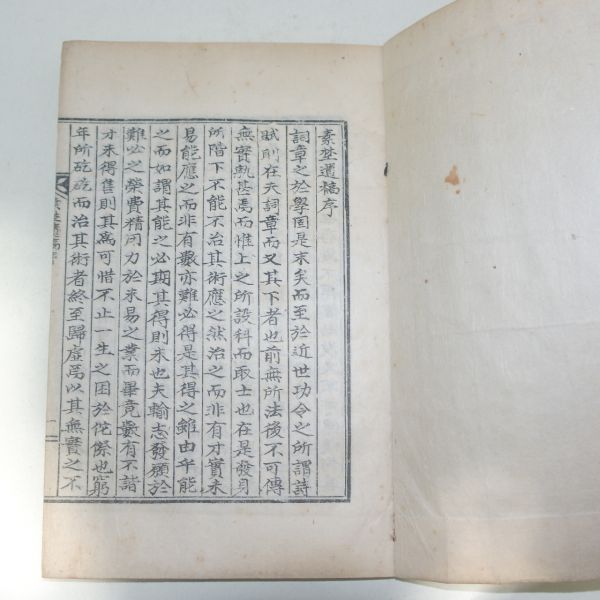 素堂遺稿序
詞章之於學固是末矣而至於近世功令之所謂詩
賦則在天詞章而又其下者也前無所法後不可傳
無實孰甚焉而惟上之所設科而取士也在是發身
所階下不能不治其術應之然治之而非有才實未
易能應之而非有數亦難必得是其得之雖由乎能
之而如謂其能之必期其得則未也夫輸志發願於
難必之榮費精用力於未易之業而畢竟數有不諧
才未得售則其爲可惜不止一生之困於侘傺也窮
年所矻矻而治其術者終至歸虛焉以其無實之不